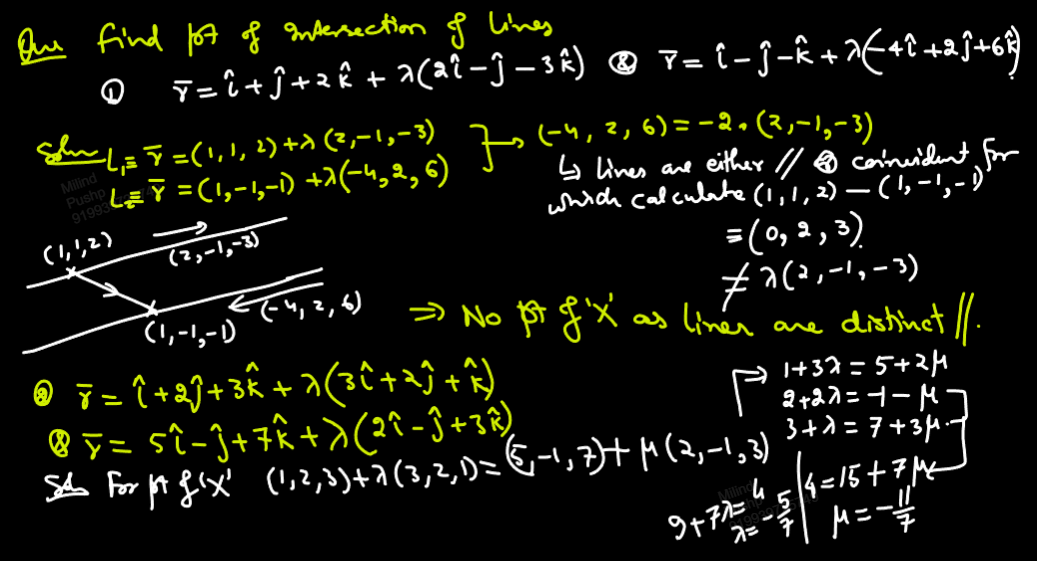 Que find pt of intersection of lines
① r̄ = î + ĵ + 2k̂ + λ(2î - ĵ - 3k̂) & r̄ = î - ĵ - k̂ + λ(-4î + 2ĵ + 6k̂)
Soln L₁ ≡ r̄ = (1, 1, 2) + λ (2, -1, -3)
L₂ ≡ r̄ = (1, -1, -1) + λ(-4, 2, 6)
(-4, 2, 6) = -2 . (2, -1, -3)
↳ lines are either // or coincident for
which calculate (1, 1, 2) - (1, -1, -1)
= (0, 2, 3)
≠ λ(2, -1, -3)
(1, 1, 2)
(2, -1, -3)
(1, -1, -1)
(-4, 2, 6)
⇒ No pt of 'X' as lines are distinct //.
② r̄ = î + 2ĵ + 3k̂ + λ(3î + 2ĵ + k̂)
& r̄ = 5î - ĵ + 7k̂ + λ(2î - ĵ + 3k̂)
Soln For pt of 'X' (1, 2, 3) + λ(3, 2, 1) = (5, -1, 7) + μ(2, -1, 3)
1 + 3λ = 5 + 2μ
2 + 2λ = -1 - μ
3 + λ = 7 + 3μ
9 + 7λ = 4
λ = -5/7
4 = 15 + 7μ
μ = -11/7
Milind